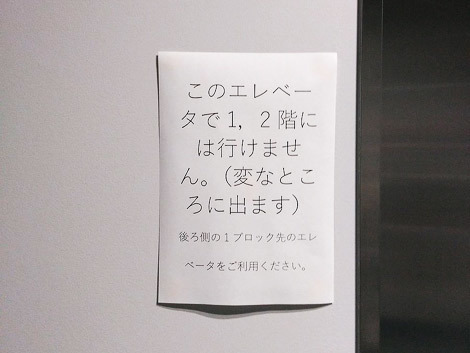 このエレベー
タで1，2階に
は行けませ
ん。（変なとこ
ろに出ます）
後ろ側の1ブロック先のエレ
ベータをご利用ください。